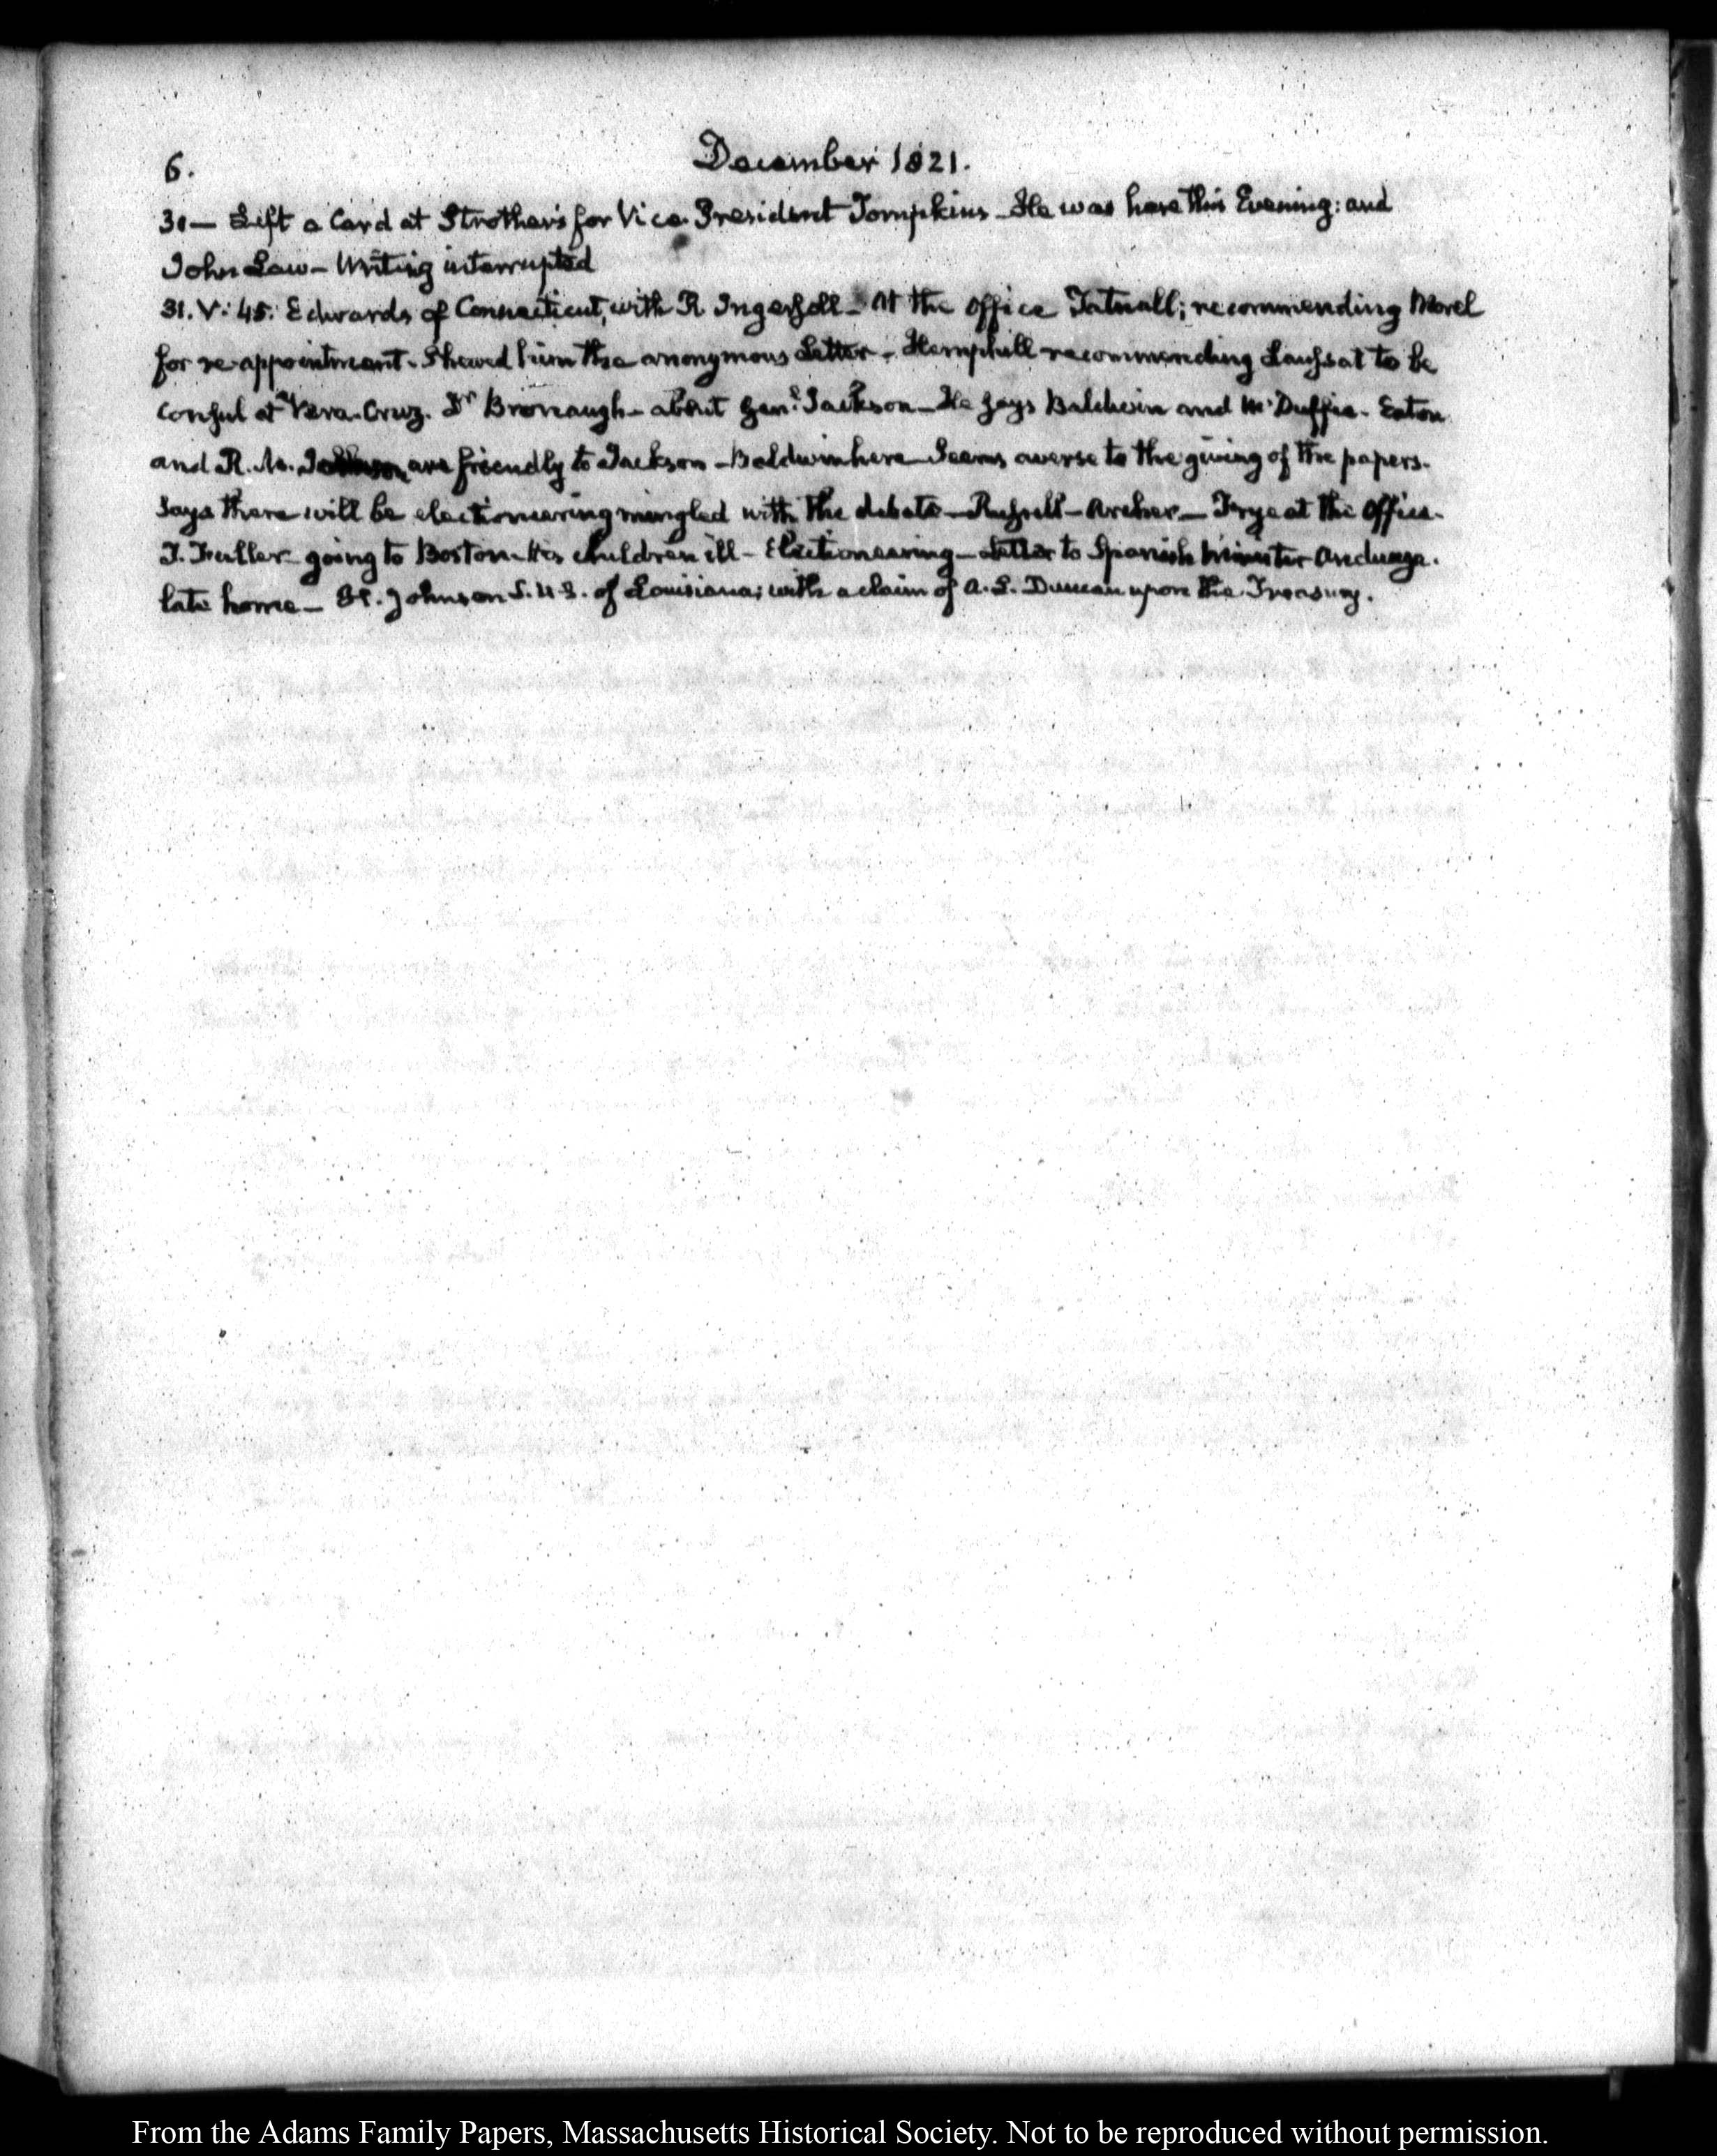 6.
December 1821.
30 — Left a Card at Strother's for Vice-President Tompkins — He was here this Evening: and
John Law — Writing interrupted
31. V: 45: Edwards of Connecticut, with R Ingersoll — At the Office Tatnall; recommending Morel
for re-appointment. Shewed him the anonymous Letter — Hemphill recommending Laussat to be
Consul at Vera-Cruz. Dr Bronaugh — about Genl. Jackson — He says Baldwin and McDuffie — Eaton
and R. M. Johnson are friendly to Jackson — Baldwin here — Seems averse to the giving of the papers.
Says there will be electioneering mingled with the debate — Russell — Archer — Frye at the Office.
T. Fuller going to Boston — His Children ill — Electioneering — Letter to Spanish Minister Anduaga.
late home — H. Johnson S. U. S. of Louisiana; with a claim of A. L. Duncan upon the Treasury.
From the Adams Family Papers, Massachusetts Historical Society. Not to be reproduced without permission.